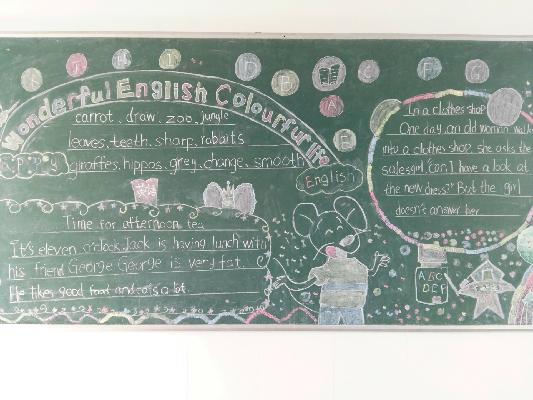 Wonderful English Colourful life
carrot, draw, zoo, jungle
leaves, teeth, sharp, rabbits
giraffes, hippos, grey, change, smooth
English
Time for afternoon tea
It's eleven o'clock. Jack is having lunch with
his friend George. George is very fat.
He likes good food and eats a lot
In a clothes shop
One day, an old woman walks
into a clothes shop. She asks the
salesgirl "Can I have a look at
the new dress?" But the girl
doesn't answer her
ABC
DEF